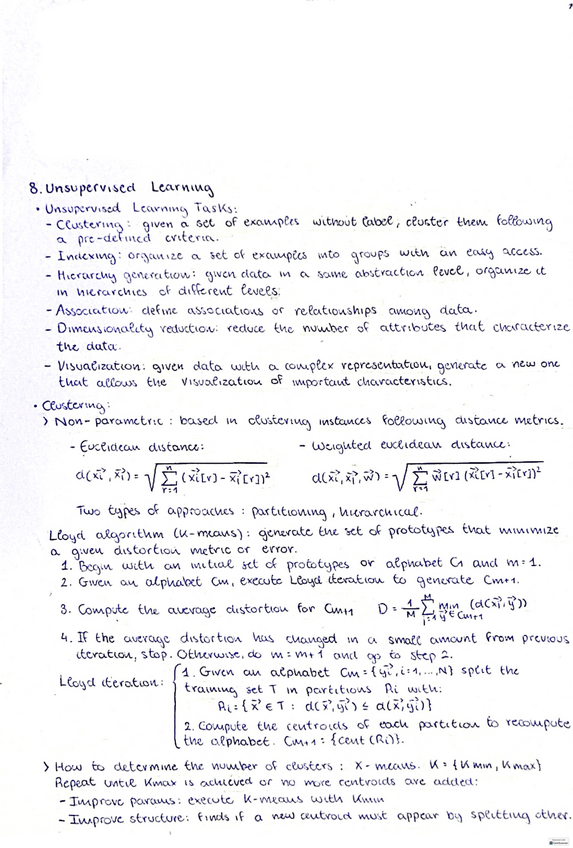 8. Unsupervised Learning
• Unsupervised Learning Tasks:
- Clustering: given a set of examples without label, cluster them following
a pre-defined criteria.
- Indexing: organize a set of examples into groups with an easy access.
- Hierarchy generation: given data in a same abstraction level, organize it
in hierarchies of different levels.
- Association: define associations or relationships among data.
- Dimensionality reduction: reduce the number of attributes that characterize
the data.
- Visualization: given data with a complex representation, generate a new one
that allows the visualization of important characteristics.
• Clustering:
> Non-parametric: based in clustering instances following distance metrics.
- Euclidean distance: - Weighted euclidean distance:
d(x⃗i, x⃗j) = √(∑_{r=1}^{n} (x⃗i[r] - x⃗j[r])²) d(x⃗i, x⃗j, w⃗) = √(∑_{r=1}^{n} w⃗[r] (x⃗i[r] - x⃗j[r])²)
Two types of approaches: partitioning, hierarchical.
Lloyd algorithm (K-means): generate the set of prototypes that minimize
a given distortion metric or error.
1. Begin with an initial set of prototypes or alphabet C1 and m=1.
2. Given an alphabet Cm, execute Lloyd iteration to generate Cm+1.
3. Compute the average distortion for Cm+1 D = 1/M ∑_{j=1}^{M} min_{y⃗ ∈ Cm+1} (d(x⃗j, y⃗))
4. If the average distortion has changed in a small amount from previous
iteration, stop. Otherwise, do m=m+1 and go to step 2.
Lloyd iteration: { 1. Given an alphabet Cm = {y⃗i, i=1,...,N} split the
training set T in partitions Ri with:
Ri = {x⃗ ∈ T : d(x⃗, y⃗i) ≤ d(x⃗, y⃗j)}
2. Compute the centroids of each partition to recompute
the alphabet. Cm+1 = {cent (Ri)}.
> How to determine the number of clusters: X-means. K = {Kmin, Kmax}
Repeat until Kmax is achieved or no more centroids are added:
- Improve params: execute K-means with Kmin
- Improve structure: finds if a new centroid must appear by splitting other.